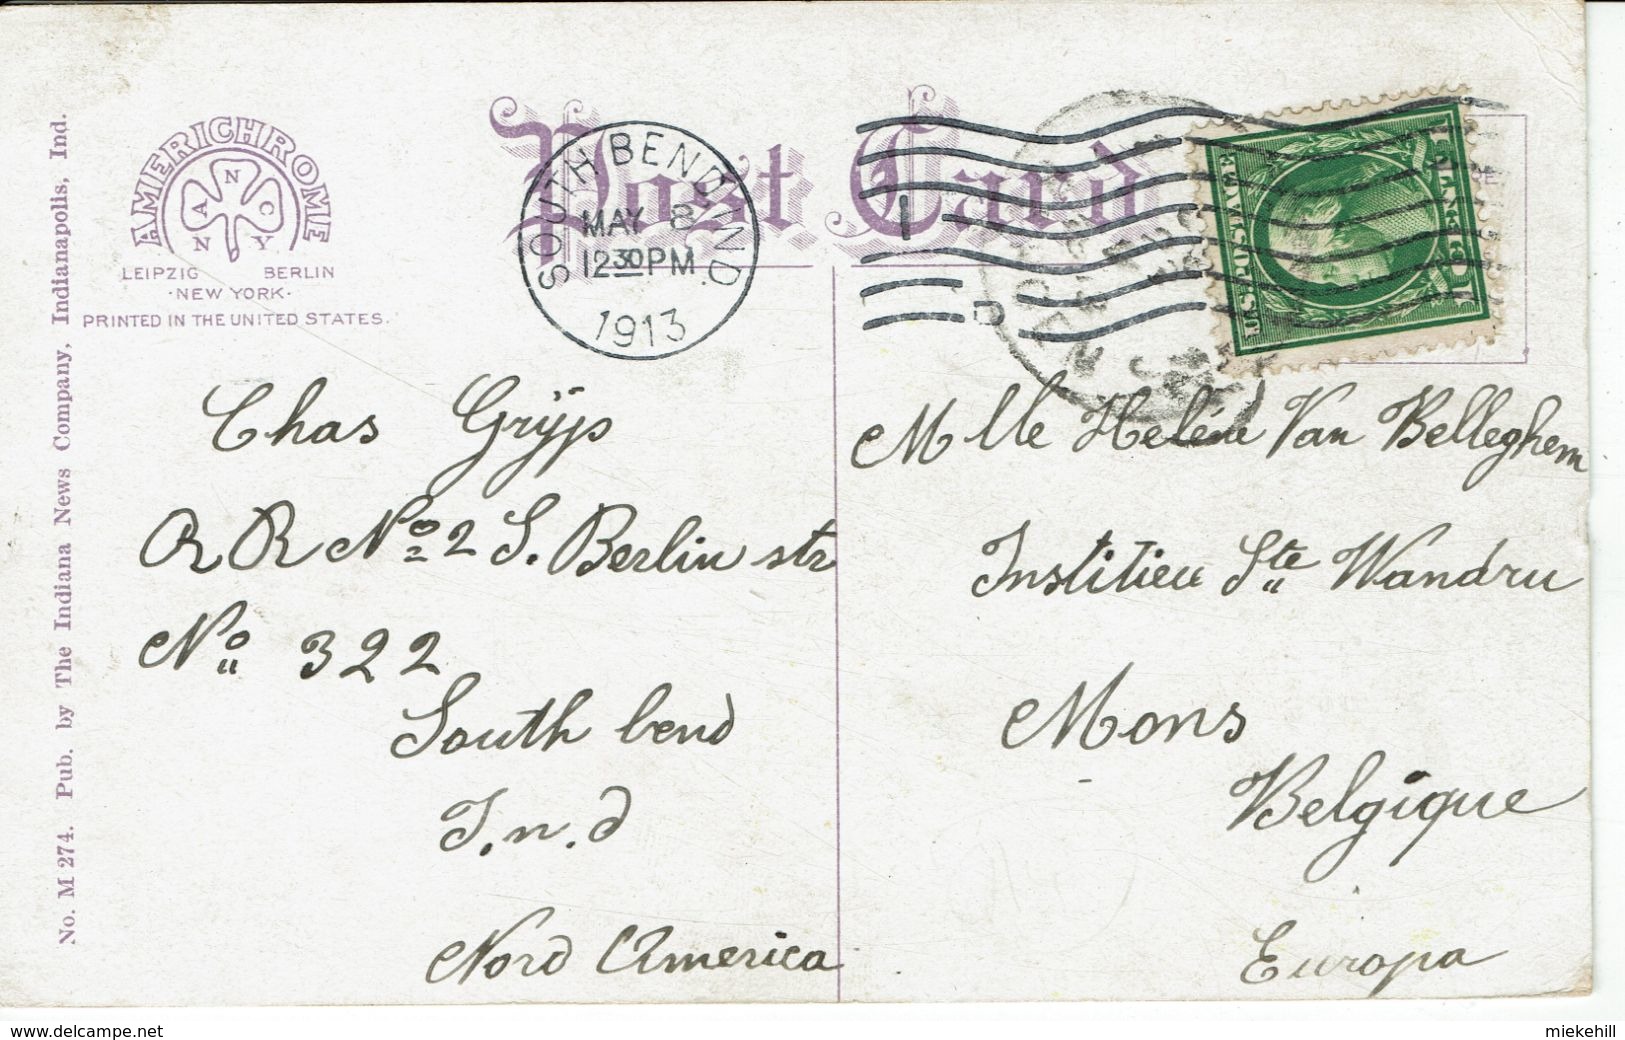 No. M 274. Pub. by The Indiana News Company, Indianapolis, Ind.
AMERICHROME
A N C N Y
LEIPZIG BERLIN
·NEW YORK·
PRINTED IN THE UNITED STATES.
Post Card
SOUTH BEND, IND.
MAY 8
12 30 PM
1913
1
U.S. POSTAGE
Chas Grÿp
R R No 2 S. Berlin str
No 322
South bend
I.n.d
Nord America
Mlle Helène Van Belleghem
Institieu Ste Wandru
Mons
Belgique
Europa
www.delcampe.net
miekehill